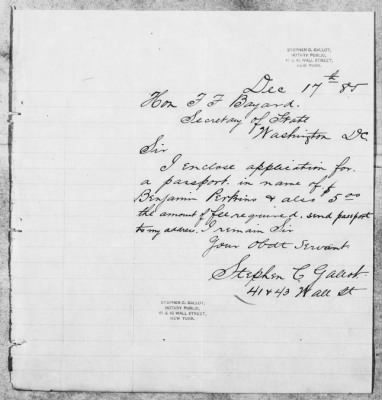 STEPHEN C. GALLOT,
NOTARY PUBLIC,
41 & 43 WALL STREET,
NEW YORK.
Dec 17th 85
Hon T F Bayard.
Secretary of State
Washington DC
Sir
I enclose application for
a passport in name of
Benjamin Perkins & also $5.00
the amount of fee required. send passport
to my address. I remain Sir
Your Obdt Servant
Stephen C Gallot
41 & 43 Wall St
STEPHEN C. GALLOT,
NOTARY PUBLIC,
41 & 43 WALL STREET,
NEW YORK.